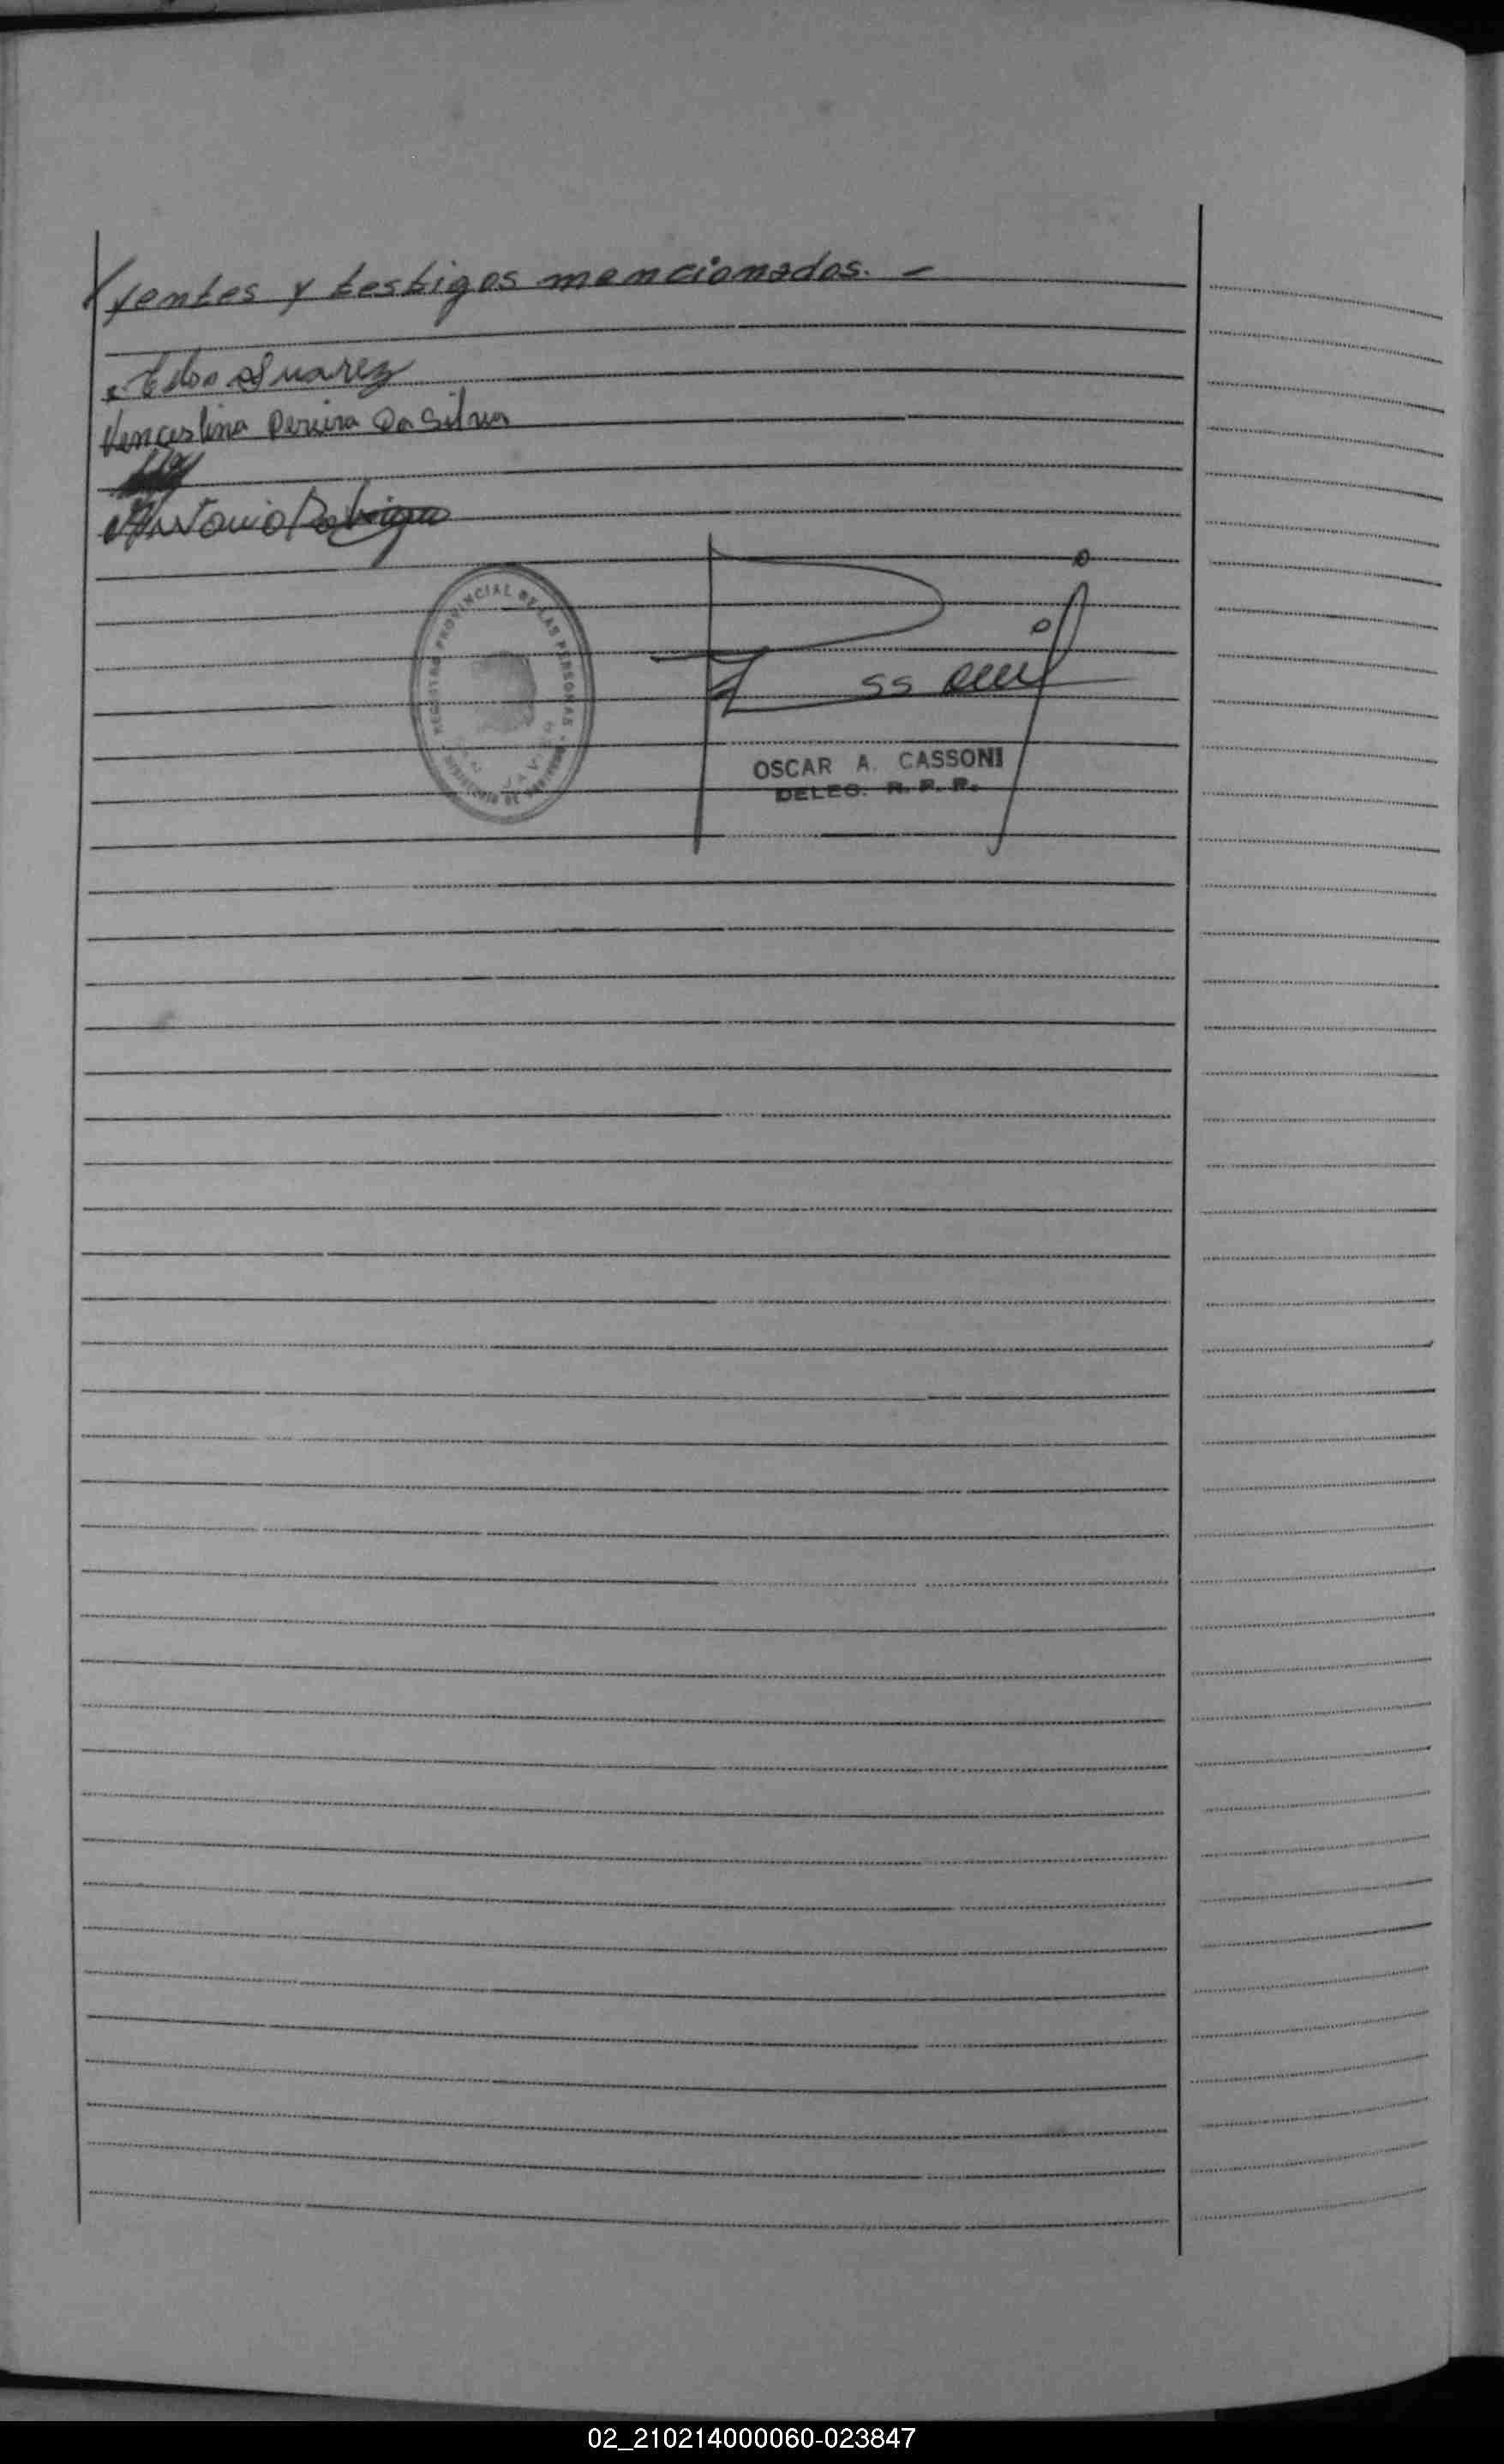 yentes y testigos mencionados. –
Suarez
Venceslina Pereira Da Silva
Antonio Rodrigu
REGISTRO PROVINCIAL DE LAS PERSONAS
OSCAR A. CASSONI
DELEG. R. P. P.
02_210214000060-023847